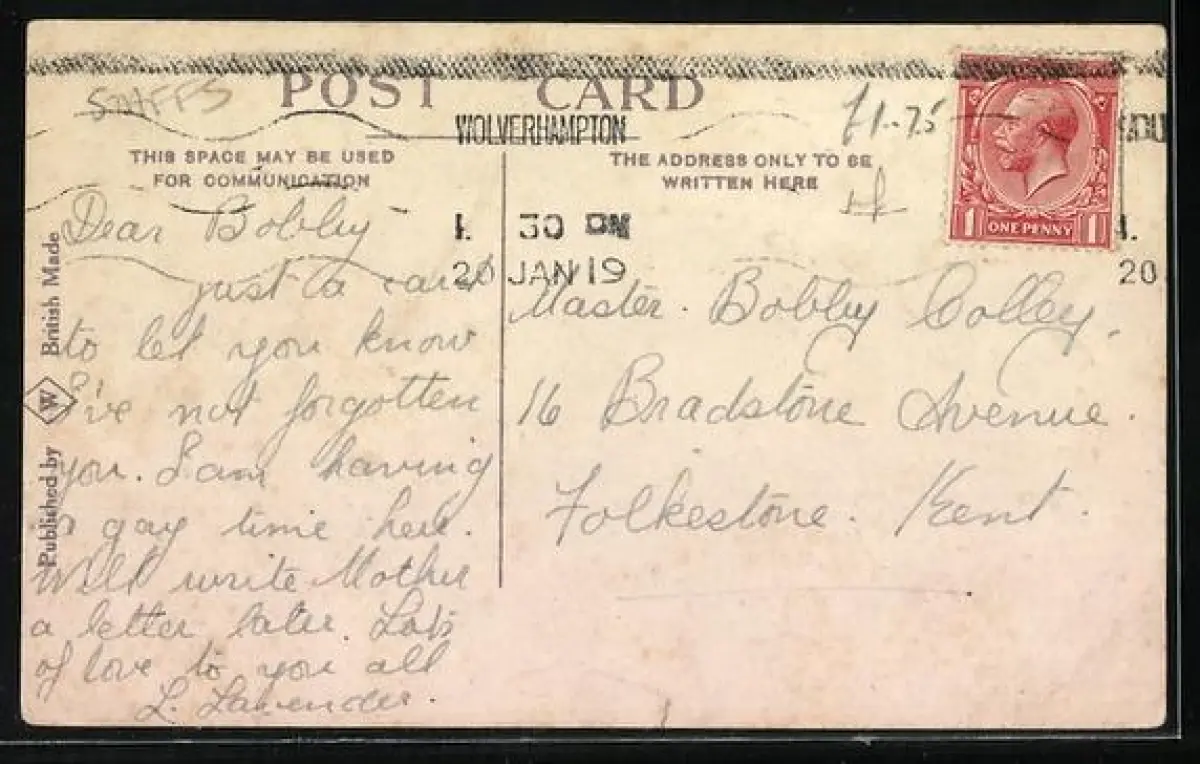 STAFFS
POST CARD
£1-75
WOLVERHAMPTON
THIS SPACE MAY BE USED
FOR COMMUNICATION
THE ADDRESS ONLY TO BE
WRITTEN HERE
30 PM
20 JAN 19
20
ONE PENNY
1 1
Dear Bobby
just a card
to let you know
I've not forgotten
you. I am having
a gay time here.
Will write Mother
a letter later. Lots
of love to you all
L. Lavender.
Master. Bobby Colley.
16 Bradstone Avenue.
Folkestone. Kent.
Published by W British Made